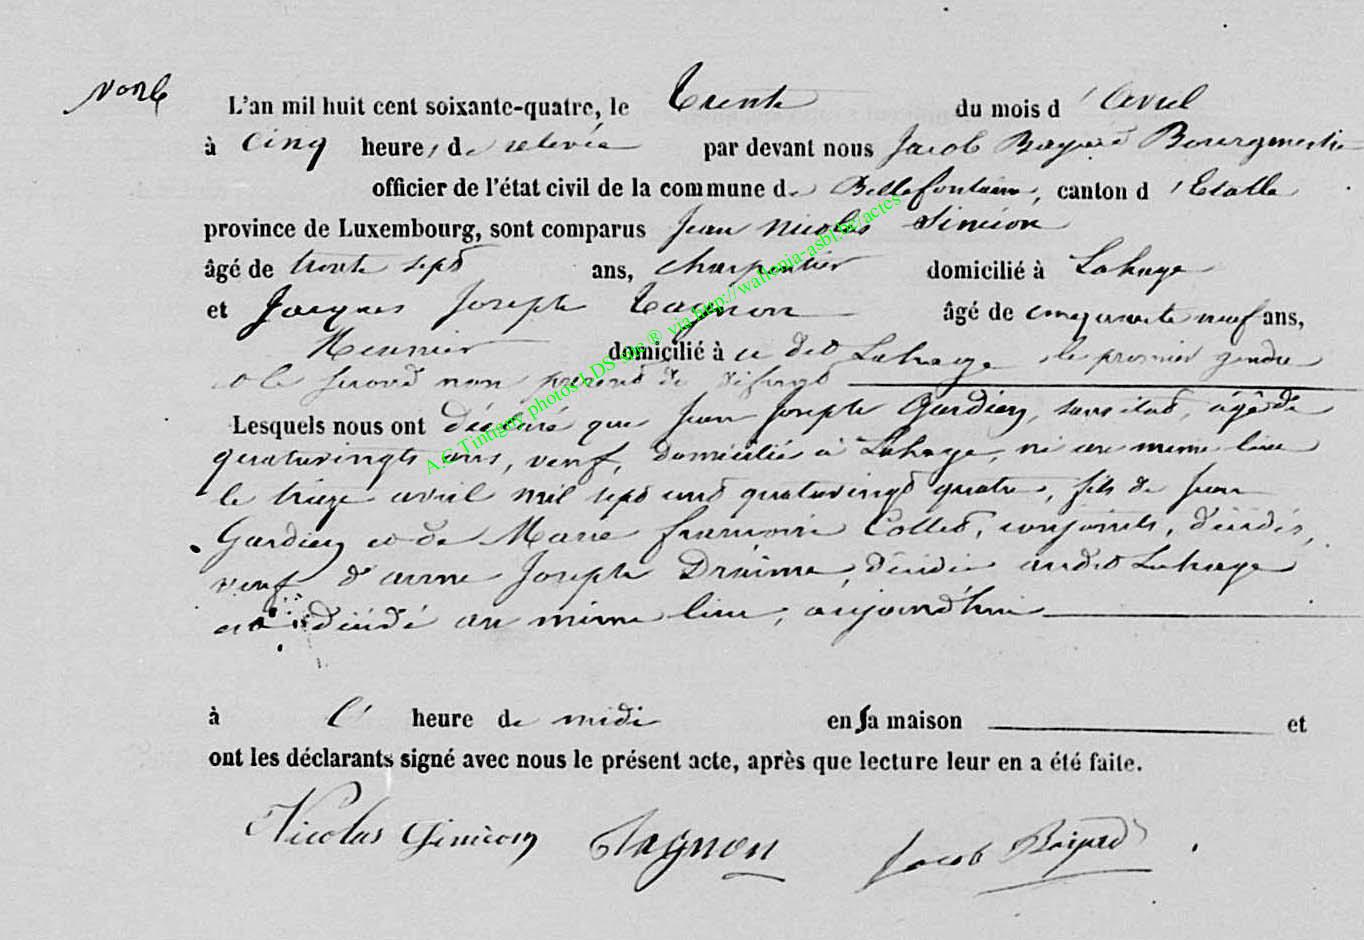 L'an mil huit cent soixante-quatre, le trente du mois d'avril
à cinq heures de relevée par devant nous Jacob Bayard Bourgmestre
officier de l'état civil de la commune de Bellefontaine, canton d'Etalle
province de Luxembourg, sont comparus Jean Nicolas Siméon
âgé de trente sept ans, charpentier domicilié à Lahage
et Jacques Joseph Tagnon âgé de cinquante neuf ans,
Meunier domicilié à ce dit Lahage le premier gendre
et le second non parent du défunt
Lesquels nous ont déclaré que Jean Joseph Gardien, sans état, âgé de
quatrevingts ans, veuf, domicilié à Lahage, né au même lieu
le treize avril mil sept cent quatrevingt quatre, fils de Jean
Gardien et de Marie françoise Collet, conjoints, décédés,
veuf d'anne Joseph décédée audit Lahage
est décédé au même lieu, aujourd'hui
à l' heure de midi en sa maison et
ont les déclarants signé avec nous le présent acte, après que lecture leur en a été faite.
Nicolas Siméon Tagnon Jacob Bayard
A.G Tintigny photos LDS slc ® via http://wallonia-asbl.be/actes